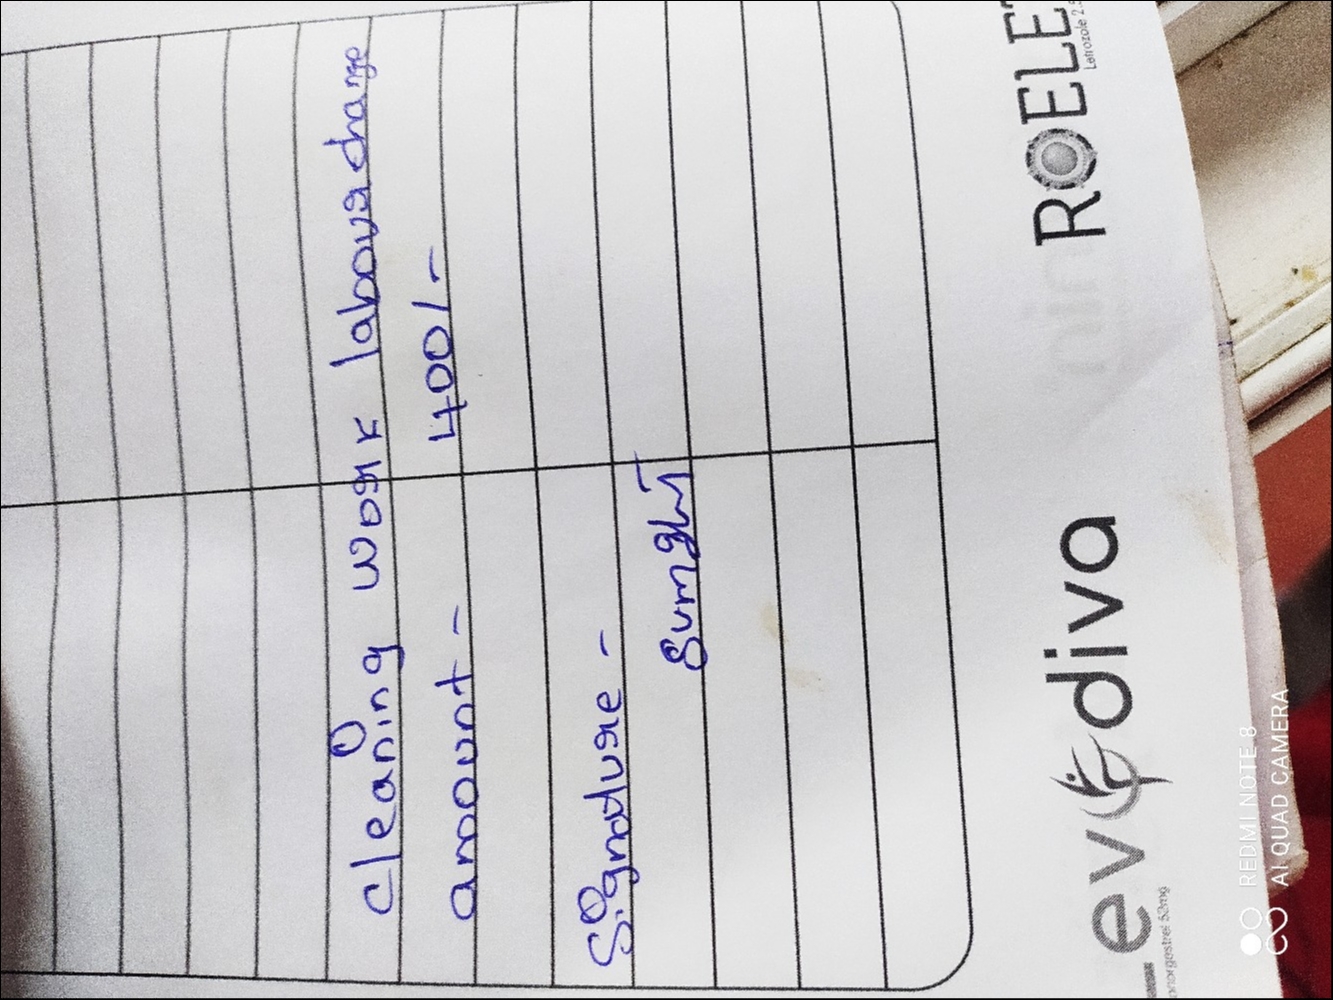 cleaning work labour charge
amount - 400/-
Signature -
evodiva
norgestrel 52mg
ROLET
Letrozole 2.5
REDMI NOTE 8
AI QUAD CAMERA